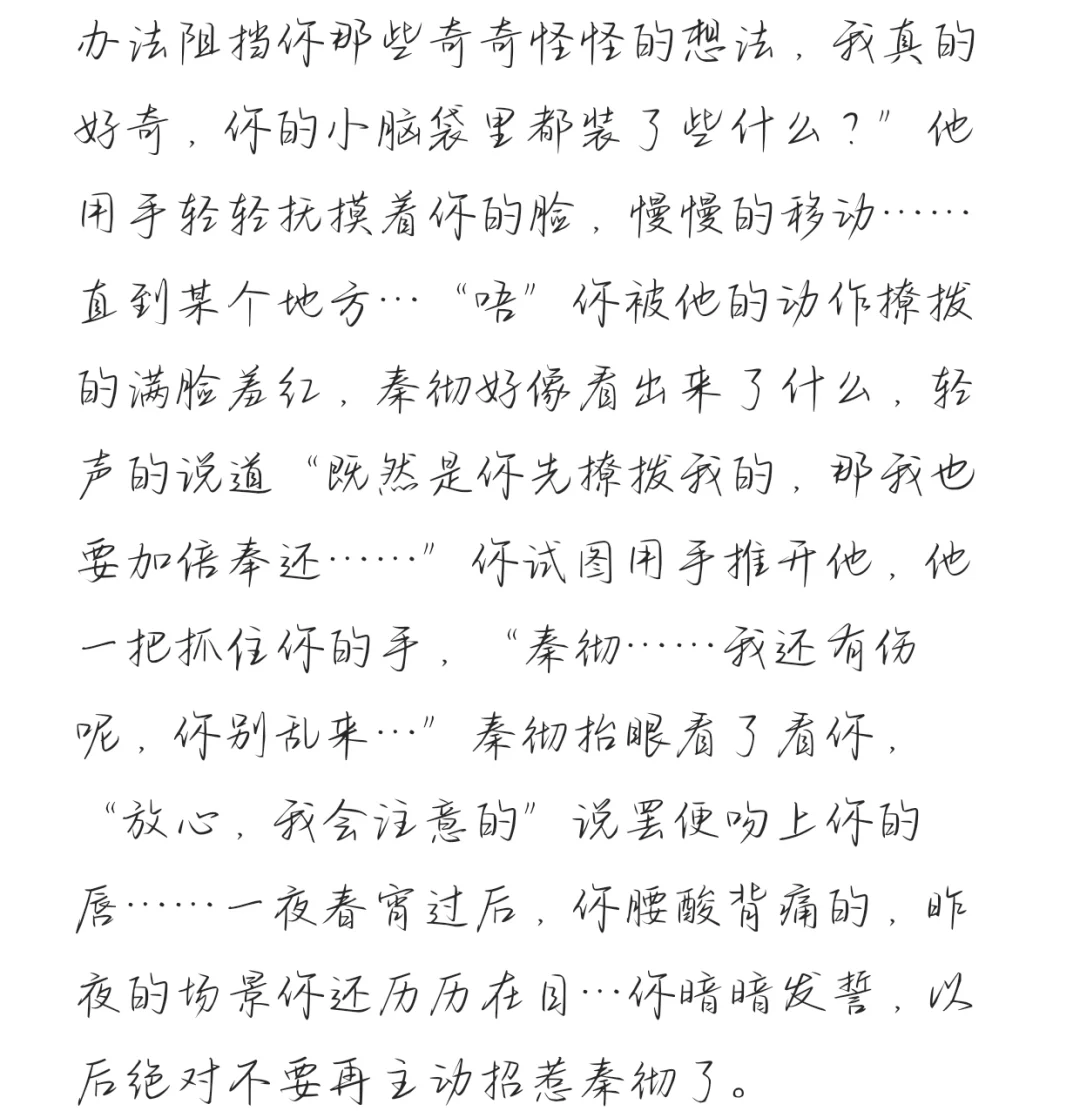 办法阻挡你那些奇奇怪怪的想法，我真的
好奇，你的小脑袋里都装了些什么？”他
用手轻轻抚摸着你的脸，慢慢的移动……
直到某个地方…“唔”你被他的动作撩拨
的满脸羞红，秦彻好像看出来了什么，轻
声的说道“既然是你先撩拨我的，那我也
要加倍奉还……”你试图用手推开他，他
一把抓住你的手，“秦彻……我还有伤
呢，你别乱来…”秦彻抬眼看了看你，
“放心，我会注意的”说罢便吻上你的
唇……一夜春宵过后，你腰酸背痛的，昨
夜的场景你还历历在目…你暗暗发誓，以
后绝对不要再主动招惹秦彻了。